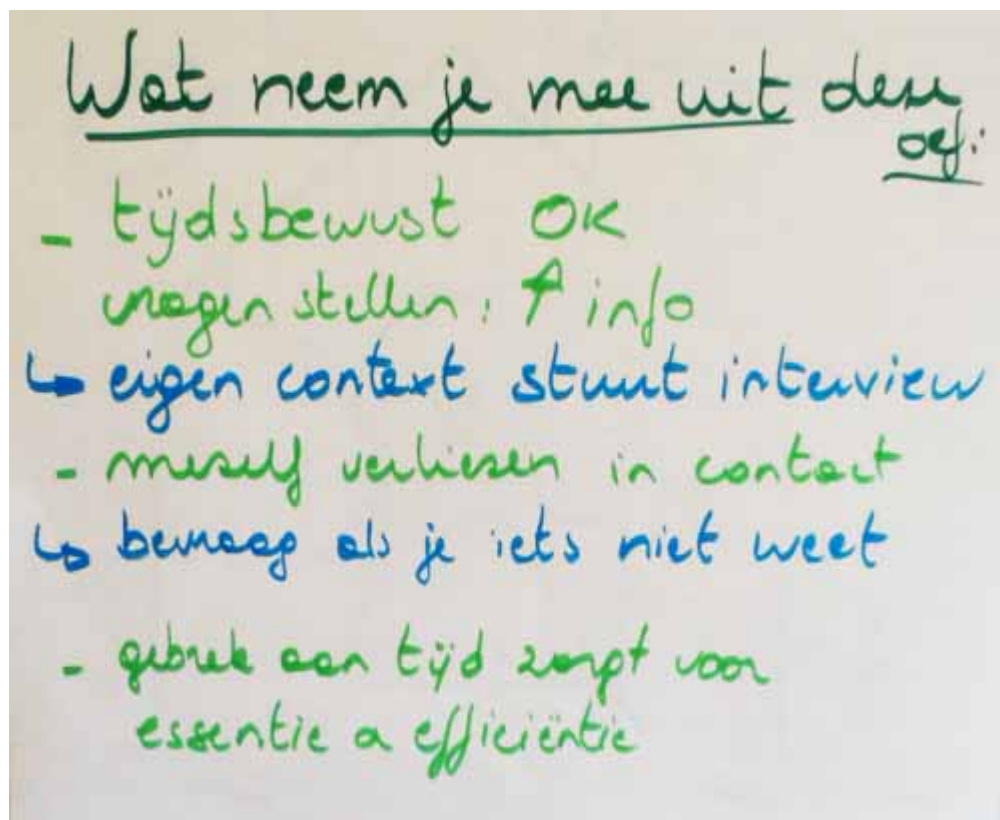 Wat neem je mee uit deze
oef:
- tijdsbewust OK
vragen stellen: ↑ info
↳ eigen context stuurt interview
- mezelf verliezen in contact
↳ bevraag als je iets niet weet
- gebrek aan tijd zorgt voor
essentie a efficiëntie